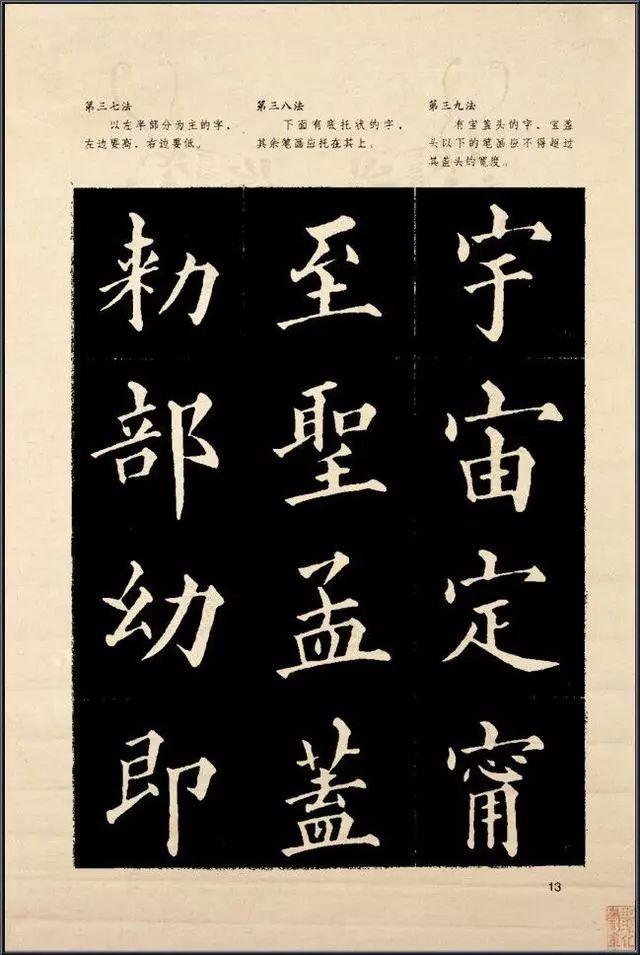 第三七法
以左半部分为主的字,
左边要高,右边要低。
第三八法
下面有底托状的字,
其余笔画应托在其上。
第三九法
有宝盖头的字,宝盖
头以下的笔画应不得超过
其盖头的宽度。
勑部幼即
至聖孟蓋
宇宙定甯
13